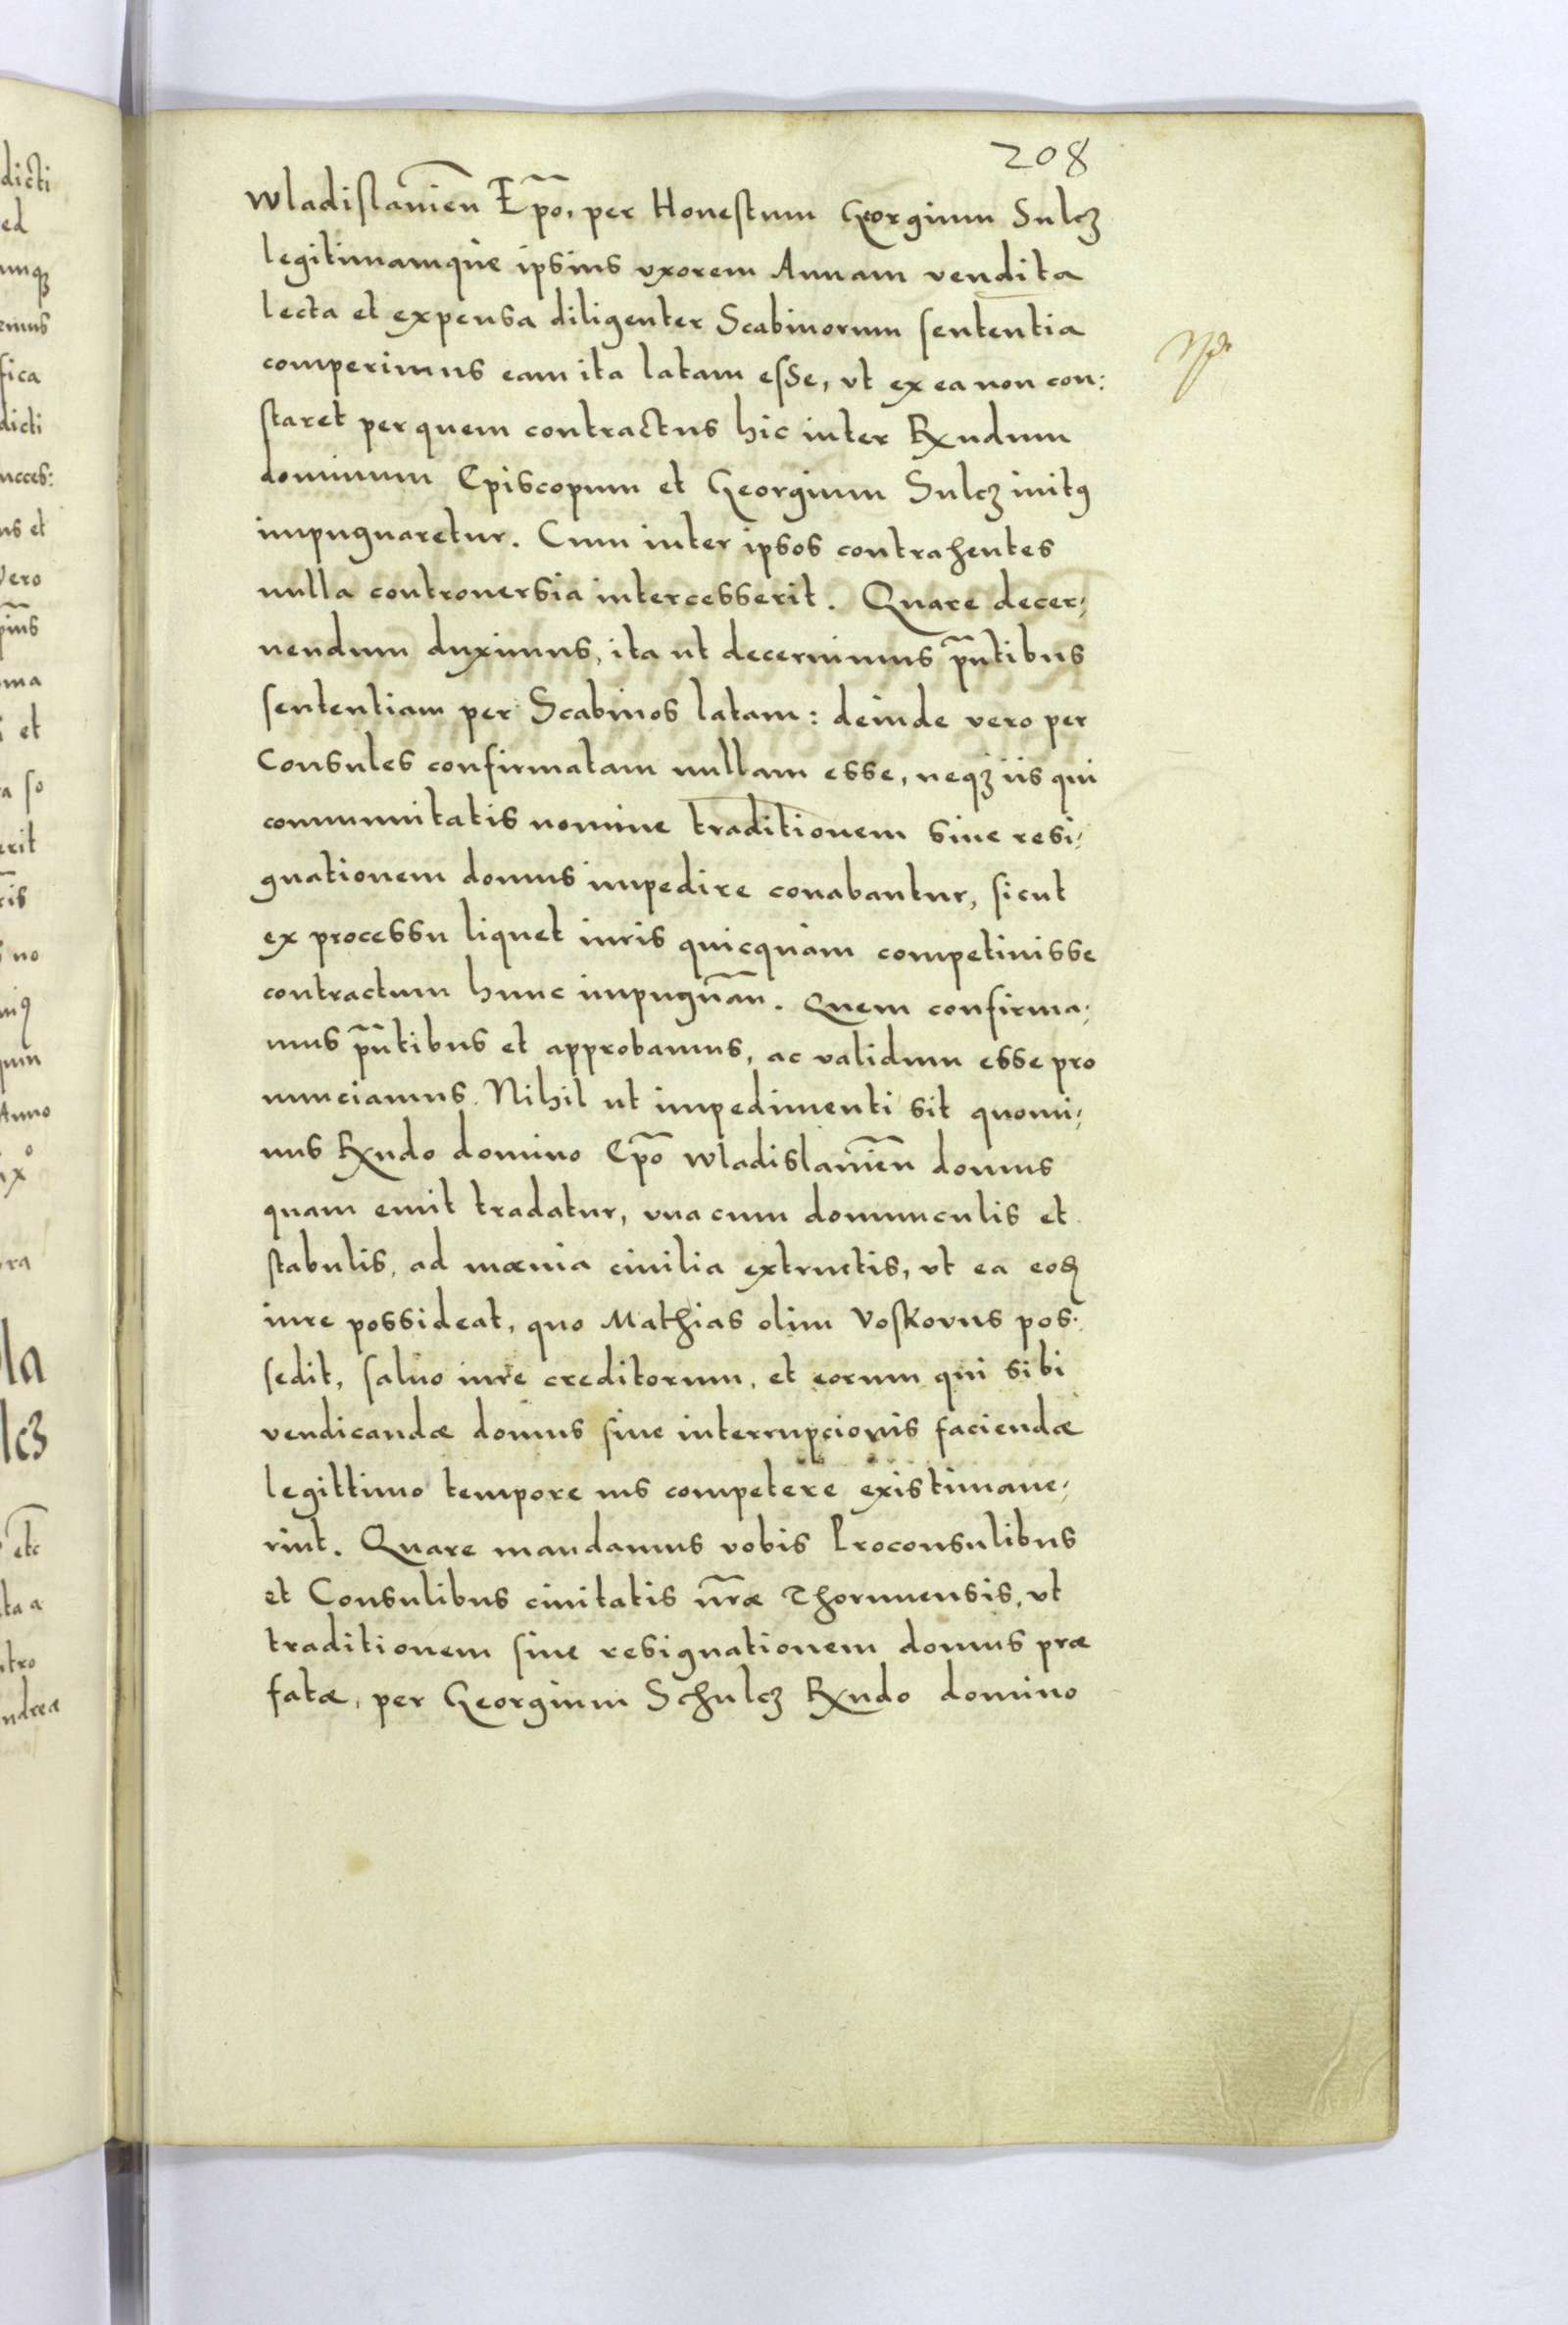 208
Wladislavien̄ Ep̄o, per Honestum Georgium Sulcz
legitimamque ipsius uxorem Annam vendita
lecta et expensa diligenter Scabinorum sententia
comperimus eam ita latam esse, ut ex ea non con:
staret per quem contractus hic inter Rxndum
dominum Episcopum et Georgium Sulcz initꝰ
impugnaretur. Cum inter ipsos contrahentes
nulla controversia intercesserit. Quare decer,
nendum duximus, ita ut decernimus pn̄tibus
sententiam per Scabinos latam: deinde vero per
Consules confirmatam nullam esse, neqꝫ iis qui
communitatis nomine traditionem sive resi,
gnationem domus impedire conabantur, sicut
ex processu liquet iuris quicquam competivisse
contractum hunc impugn̄an. Quem confirma,
mus pn̄tibus et approbamus, ac validum esse pro
nunciamus. Nihil ut impedimenti sit quomi,
nus Rxndo domino Ep̄o Wladislavien̄ domus
quam emit tradatur, una cum domunculis et
stabulis, ad mœnia civilia extructis, ut ea eoꝺ
iure possideat, quo Mathias olim Voskovus pos.
sedit, salvo iure creditorum, et eorum qui sibi
vendicandæ domus sive interrupcionis faciendæ
legittimo tempore ius competere existimave,
rint. Quare mandamus vobis Proconsulibus
et Consulibus civitatis nr̄æ Thorunensis, ut
traditionem sive resignationem domus præ
fatæ, per Georgium Schulcz Rxndo domino